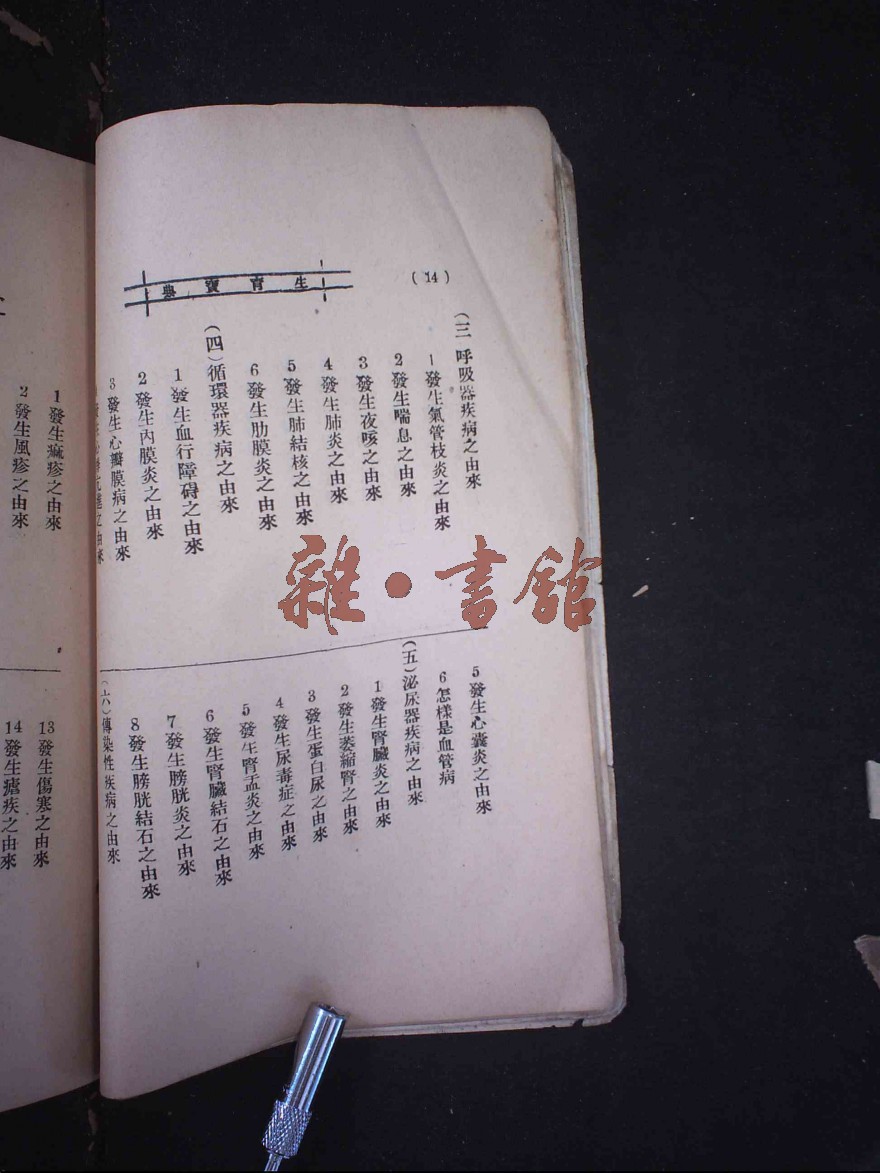 (14)
生育寶典
(三 呼吸器疾病之由來
1 發生氣管枝炎之由來
2 發生喘息之由來
3 發生夜咳之由來
4 發生肺炎之由來
5 發生肺結核之由來
6 發生肋膜炎之由來
(四)循環器疾病之由來
1 發生血行障碍之由來
2 發生內膜炎之由來
3 發生心瓣膜病之由來
進之由來
5 發生心囊炎之由來
6 怎樣是血管病
(五)泌尿器疾病之由來
1 發生腎臟炎之由來
2 發生萎縮腎之由來
3 發生蛋白尿之由來
4 發生尿毒症之由來
5 發生腎盂炎之由來
6 發生腎臟結石之由來
7 發生膀胱炎之由來
8 發生膀胱結石之由來
(六)傳染性疾病之由來
1 發生痲疹之由來
2 發生風疹之由來
13 發生傷寒之由來
14 發生瘧疾之由來
雜·書館